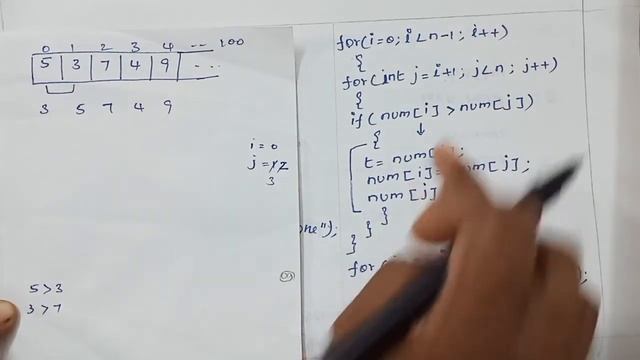 0 1 2 3 4 -- 100
5 3 7 4 9 ...
3 5 7 4 9
i = 0
j = 1 2
3
5>3
3>7
for(i=0; i<n-1; i++)
{
for(int j=i+1; j<n; j++)
{
if(num[i]>num[j])
{
t= num[
num[i]= num[j];
num[j]
}
}
}
one");
for(